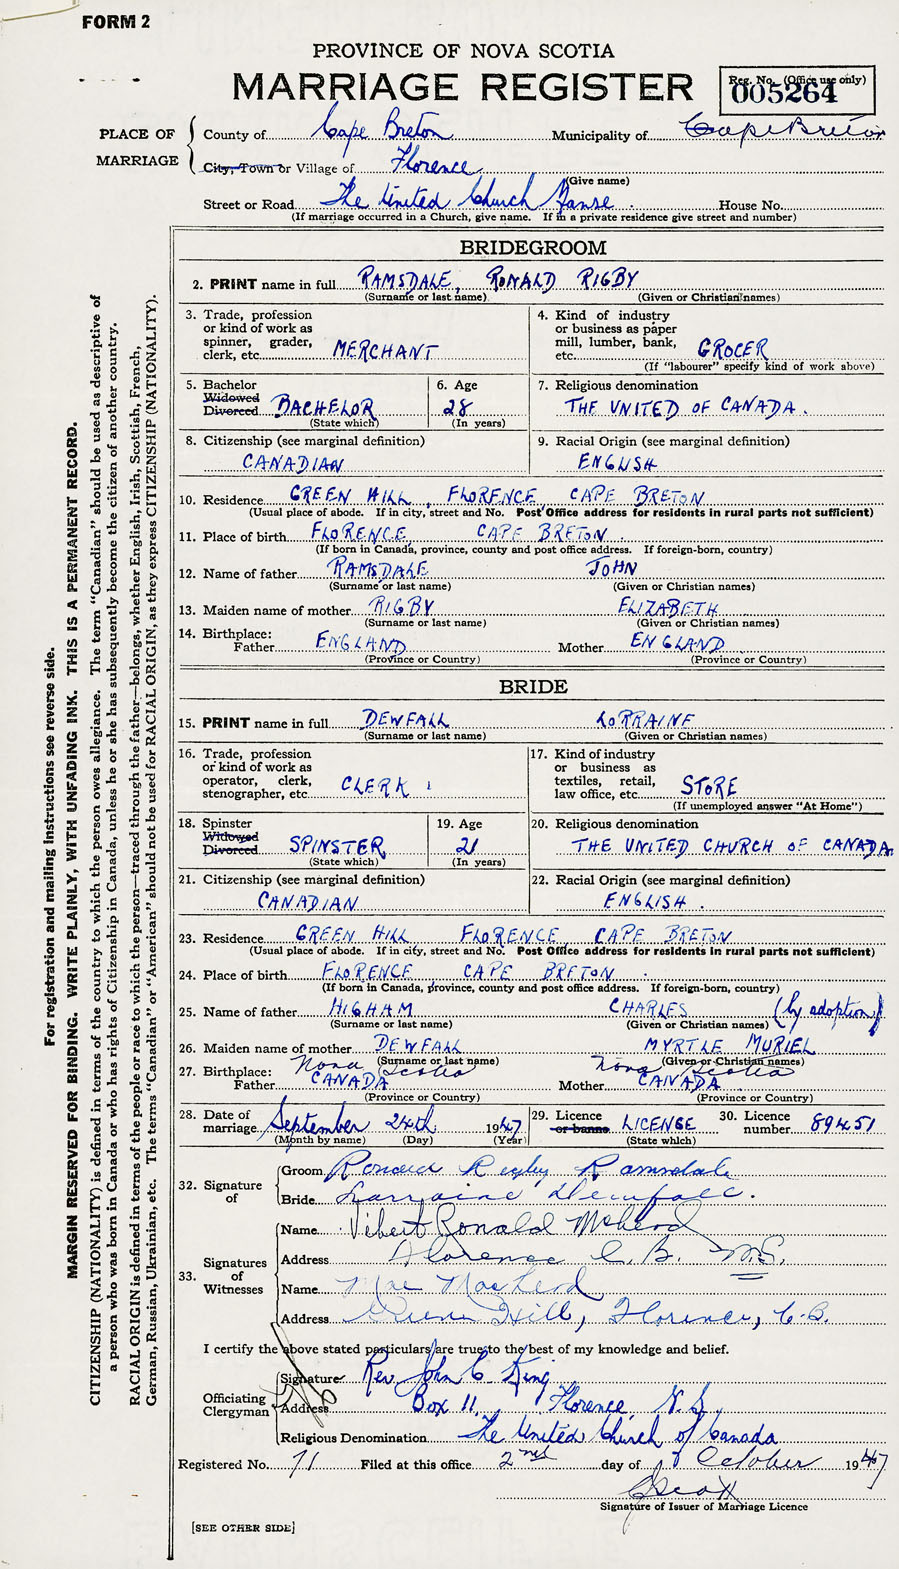 FORM 2
PROVINCE OF NOVA SCOTIA
MARRIAGE REGISTER
Reg. No. (Office use only)
005264
PLACE OF MARRIAGE
County of Cape Breton Municipality of Cape Breton
City, Town or Village of Florence
(Give name)
Street or Road The United Church Manse. House No.
(If marriage occurred in a Church, give name. If in a private residence give street and number)
BRIDEGROOM
2. PRINT name in full RAMSDALE, RONALD RIGBY
(Surname or last name) (Given or Christian names)
3. Trade, profession or kind of work as spinner, grader, clerk, etc. MERCHANT
4. Kind of industry or business as paper mill, lumber, bank, etc. GROCER
(If "labourer" specify kind of work above)
5. Bachelor Widowed Divorced BACHELOR
(State which)
6. Age 28
(In years)
7. Religious denomination
THE UNITED OF CANADA.
8. Citizenship (see marginal definition)
CANADIAN
9. Racial Origin (see marginal definition)
ENGLISH
10. Residence GREEN HILL, FLORENCE, CAPE BRETON
(Usual place of abode. If in city, street and No. Post Office address for residents in rural parts not sufficient)
11. Place of birth FLORENCE, CAPE BRETON.
(If born in Canada, province, county and post office address. If foreign-born, country)
12. Name of father RAMSDALE JOHN
(Surname or last name) (Given or Christian names)
13. Maiden name of mother RIGBY ELIZABETH
(Surname or last name) (Given or Christian names)
14. Birthplace: Father ENGLAND Mother ENGLAND
(Province or Country) (Province or Country)
BRIDE
15. PRINT name in full DEWFALL LORRAINE
(Surname or last name) (Given or Christian names)
16. Trade, profession or kind of work as operator, clerk, stenographer, etc. CLERK
17. Kind of industry or business as textiles, retail, law office, etc. STORE
(If unemployed answer "At Home")
18. Spinster Widowed Divorced SPINSTER
(State which)
19. Age 21
(In years)
20. Religious denomination
THE UNITED CHURCH OF CANADA.
21. Citizenship (see marginal definition)
CANADIAN
22. Racial Origin (see marginal definition)
ENGLISH.
23. Residence GREEN HILL FLORENCE CAPE BRETON
(Usual place of abode. If in city, street and No. Post Office address for residents in rural parts not sufficient)
24. Place of birth FLORENCE CAPE BRETON.
(If born in Canada, province, county and post office address. If foreign-born, country)
25. Name of father HIGHAM CHARLES (by adoption)
(Surname or last name) (Given or Christian names)
26. Maiden name of mother DEWFALL MYRTLE MURIEL
(Surname or last name) (Given or Christian names)
Nova Scotia Nova Scotia
27. Birthplace: Father CANADA Mother CANADA
(Province or Country) (Province or Country)
28. Date of marriage September 24th 1947
(Month by name) (Day) (Year)
29. Licence or banns LICENSE
(State which)
30. Licence number 89451
32. Signature of
Groom Ronald Rigby Ramsdale
Bride Lorraine Dewfall.
33. Signatures of Witnesses
Name Vibert Ronald McLeod
Address Florence C.B. N.S.
Name Mae MacLeod
Address Green Hill, Florence, C.B.
I certify the above stated particulars are true to the best of my knowledge and belief.
Officiating Clergyman
Signature Rev. John C King
Address Box 11, Florence, N.S.
Religious Denomination The United Church of Canada
Registered No. 71 Filed at this office 2nd day of October 1947
Signature of Issuer of Marriage Licence
[SEE OTHER SIDE]
For registration and mailing instructions see reverse side.
MARGIN RESERVED FOR BINDING. WRITE PLAINLY, WITH UNFADING INK. THIS IS A PERMANENT RECORD.
CITIZENSHIP (NATIONALITY) is defined in terms of the country to which the person owes allegiance. The term "Canadian" should be used as descriptive of
a person who was born in Canada or who has rights of Citizenship in Canada, unless he or she has subsequently become the citizen of another country.
RACIAL ORIGIN is defined in terms of the people or race to which the person—traced through the father—belongs, whether English, Irish, Scottish, French,
German, Russian, Ukrainian, etc. The terms "Canadian" or "American" should not be used for RACIAL ORIGIN, as they express CITIZENSHIP (NATIONALITY).